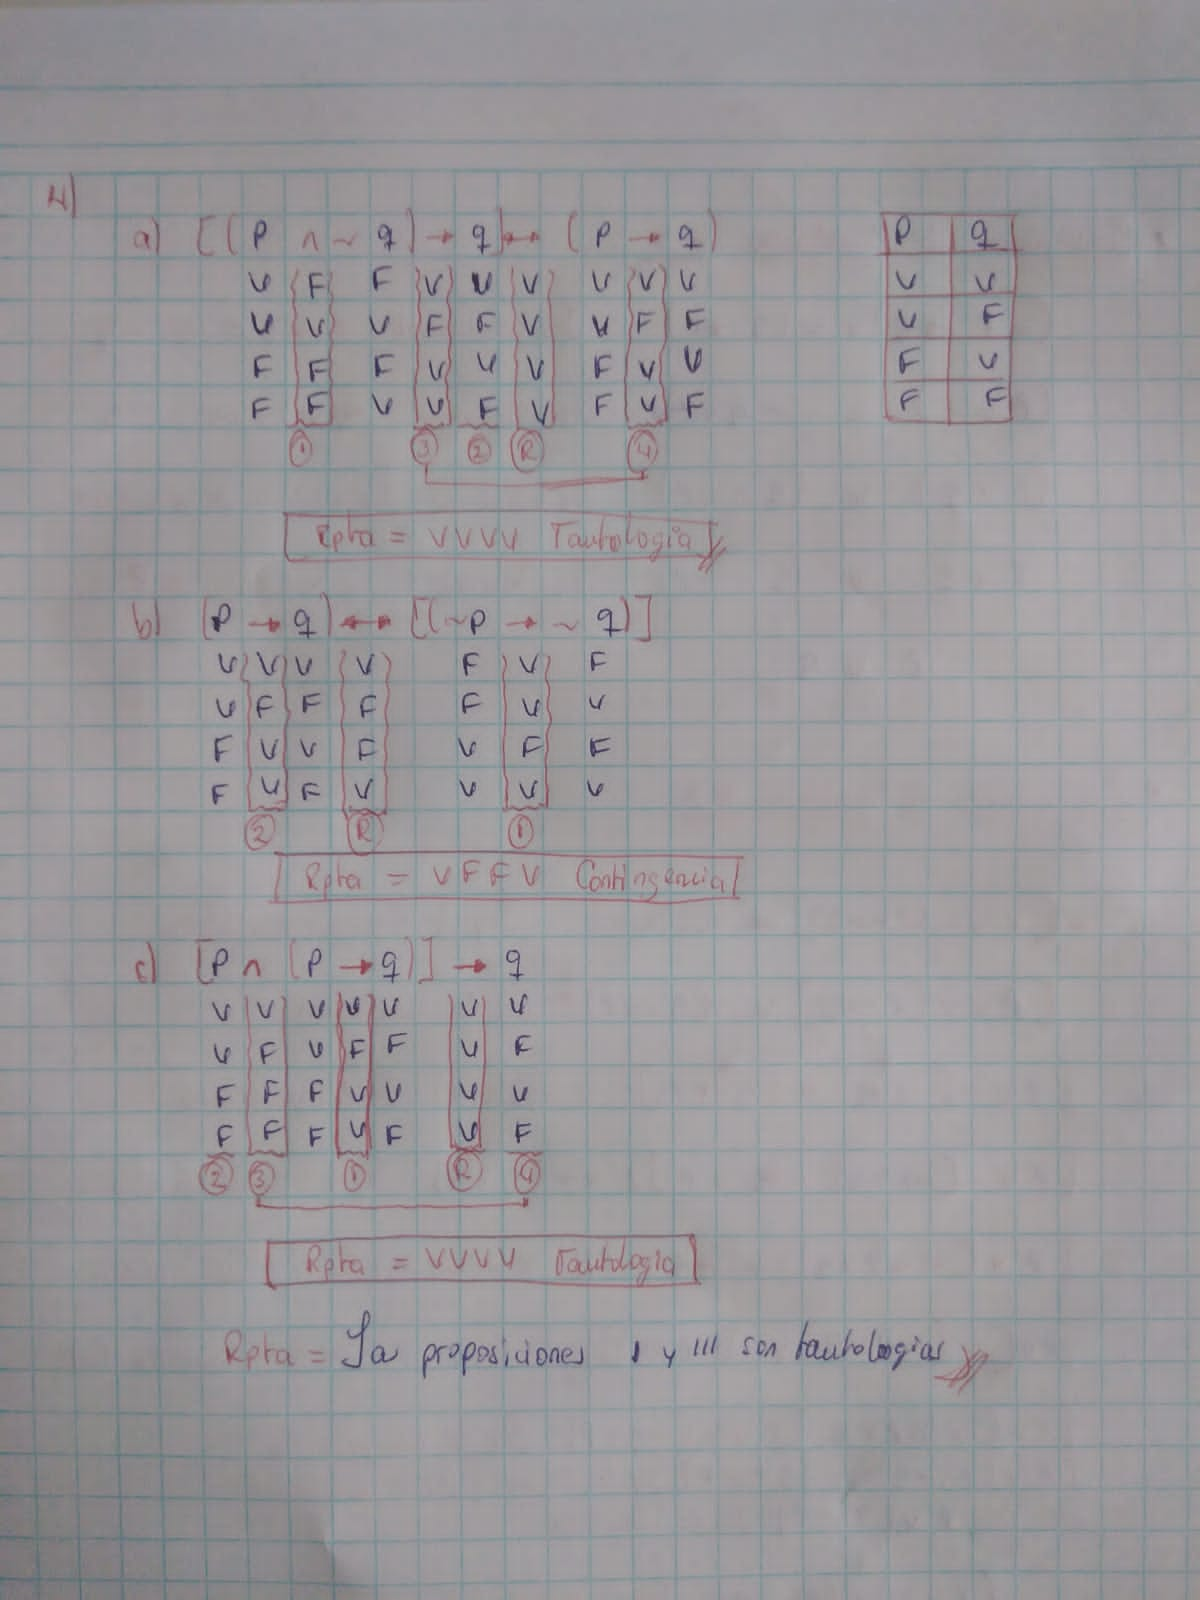 4)
a) [(P ∧ ~ q) → q] ↔ (P → q)
V F F V V V V V V
V V V F F V V F F
F F F V V V F V V
F F V V F V F V F
① ③ ② Ⓡ ④
P q
V V
V F
F V
F F
Rpta = VVVV Tautologia
b) (P → q) ↔ [(~P → ~ q)]
V V V V F V F
V F F F F V V
F V V F V F F
F V F V V V V
② Ⓡ ①
Rpta = V F F V Contingencia
c) [P ∧ (P → q)] → q
V V V V V V V
V F V F F V F
F F F V V V V
F F F V F V F
② ③ ① Ⓡ ④
Rpta = VVVV Tautlogia
Rpta = La proposiciones I y III son tautologias